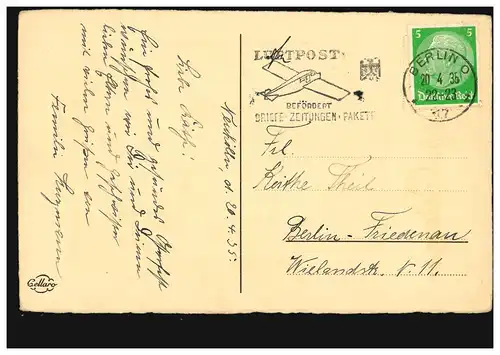 Neukölln, d. 20.4.35.
Liebe Käthe!
Ein frohes und gesundes Osterfest
wünschen wir Dir und Deinen
lieben Eltern und
mit vielen Grüßen an
Familie
Cellaro
LUFTPOST
BEFÖRDERT
BRIEFE - ZEITUNGEN - PAKETE
BERLIN O
20.4.35
17
5 5
Deutsches Reich
Frl.
Käthe Theil
Berlin-Friedenau
Wielandstr. N. 11.